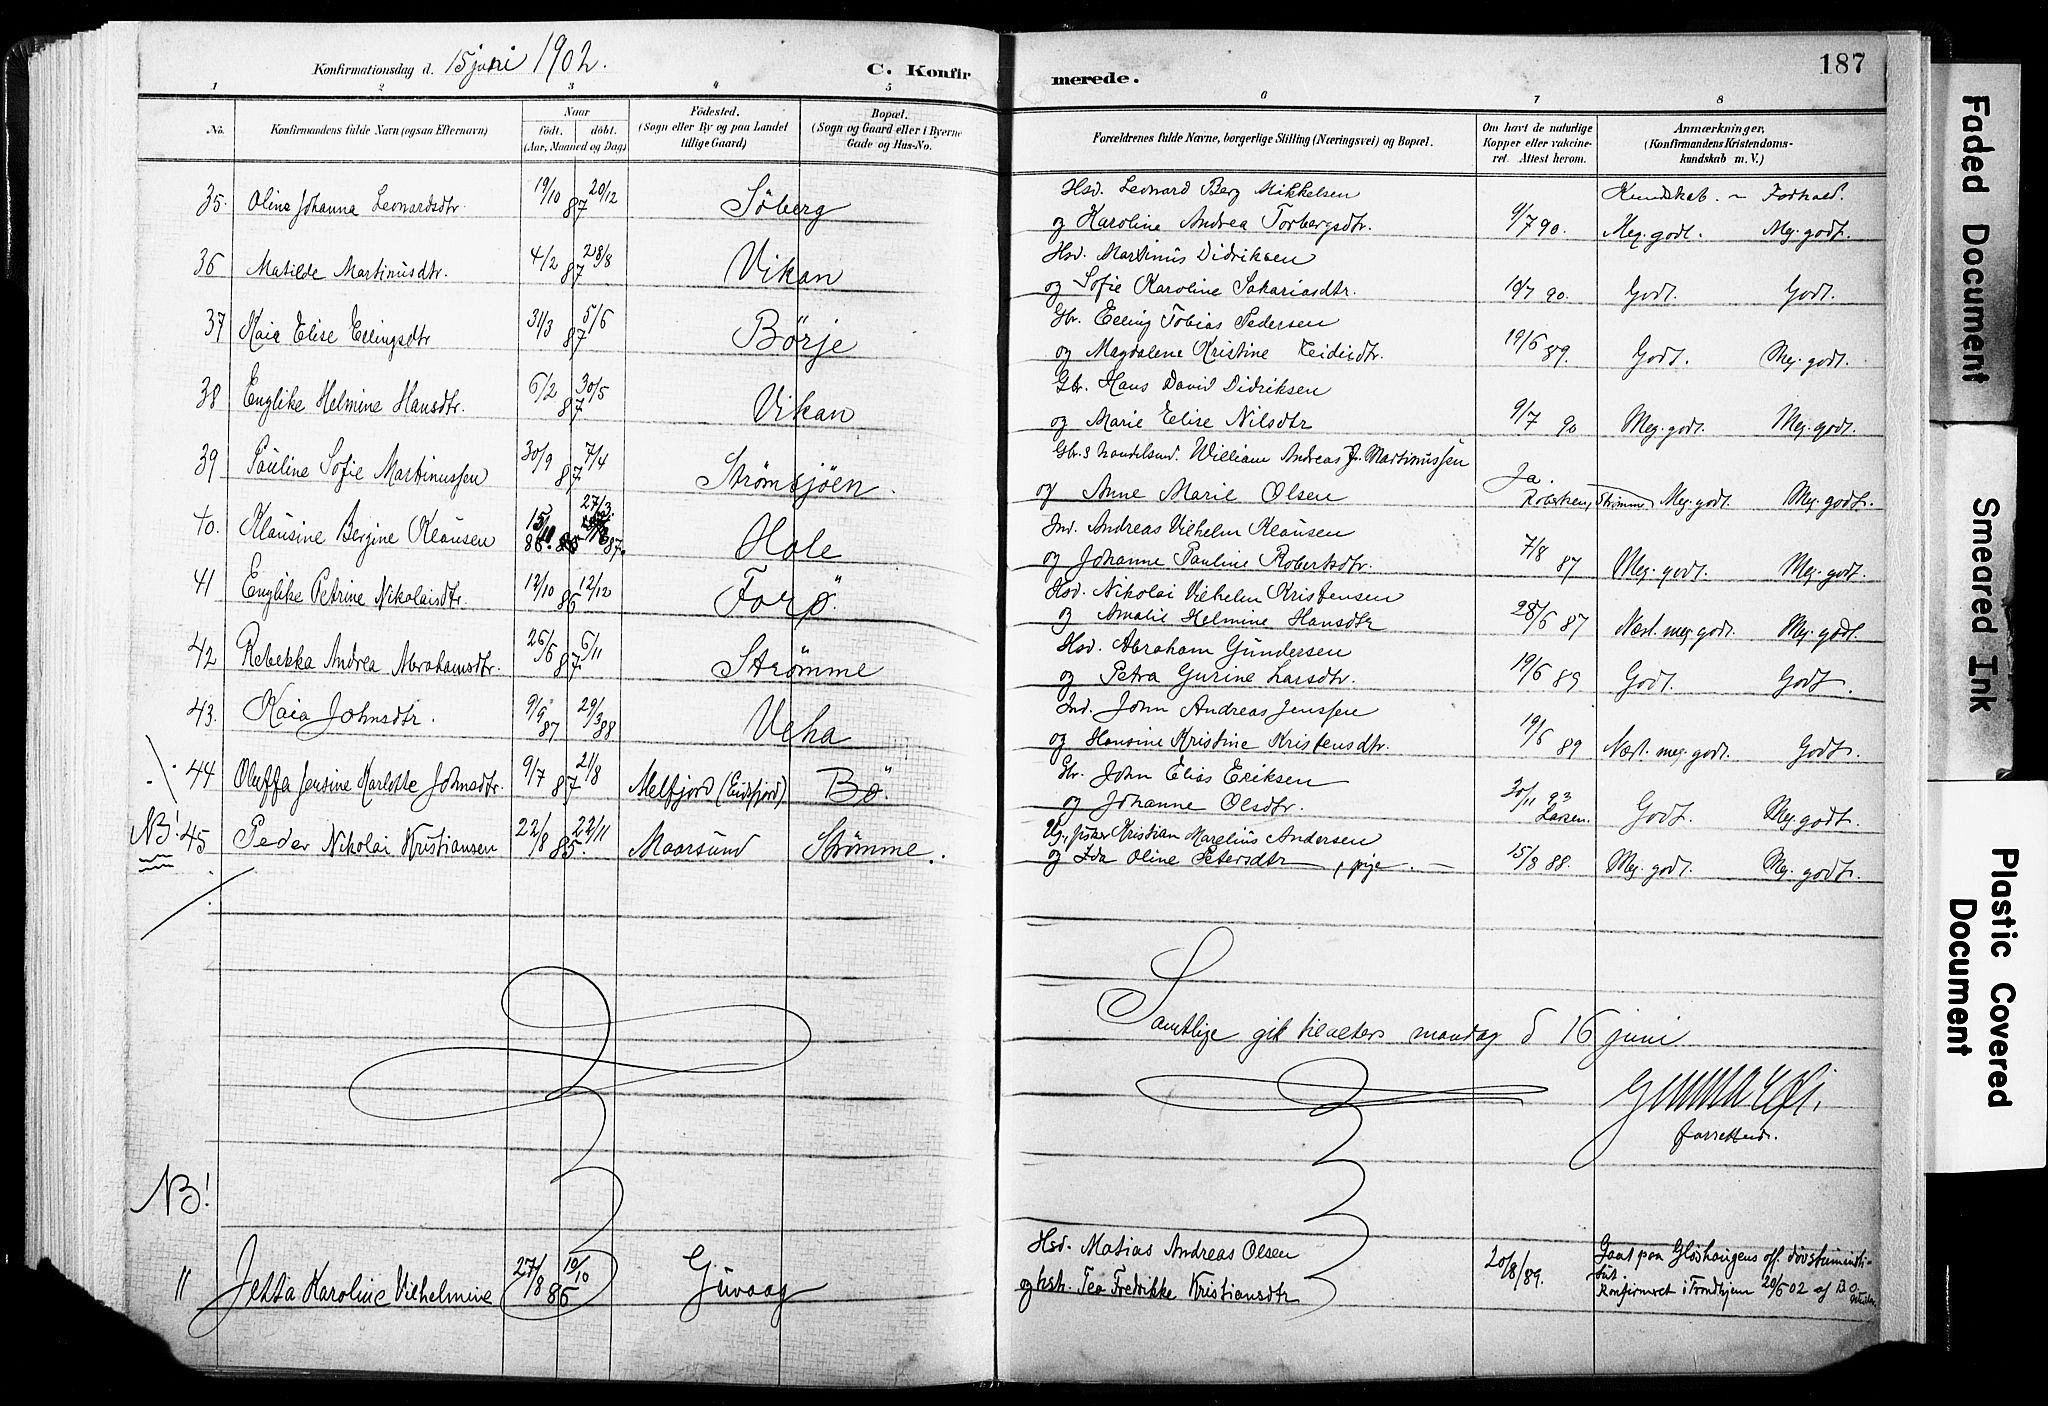 Konfirmationsdag d. 15 juni 1902.
C. Konfirmerede.
187
1 2 3 4 5 6 7 8
No. Konfirmandens fulde Navn (ogsaa Efternavn) Naar født. døbt. (Aar, Maaned og Dag) Fødested. (Sogn eller By og paa Landet tillige Gaard) Bopæl. (Sogn og Gaard eller i Byerne Gade og Hus-No. Forældrenes fulde Navne, borgerlige Stilling (Næringsvei) og Bopæl. Om havt de naturlige Kopper eller vakcineret. Attest herom. Anmærkninger. (Konfirmandens Kristendomskundskab m. V.)
Hsd. Leonard Berg Mikkelsen Kundskab. - Forhold.
35. Olina Johanna Leonardsdtr. 19/10 87 20/12 Söberg og Karoline Andrea Torbergsdtr. 9/7 90. Meg. godt. Meg. godt.
Hsd. Martinus Didriksen
36 Matilde Martinusdtr. 4/2 87 28/8 Vikan og Sofie Karoline Sakariasdtr. 10/7 90. Godt. Godt.
Gbr. Elling Tobias Pedersen
37 Kaia Elise Ellingsdtr 31/3 87 5/6 Börje og Magdalene Kristine 19/6 89. Godt. Meg. godt.
Gbr. Hans David Didriksen
38 Englike Helmine Hansdtr. 6/2 87 30/5 Vikan og Marie Elise Nilsdtr 9/7 90 Meg. godt. Meg. godt.
Gbr. & handelsmd. William Andreas J. Martinussen Ja.
39 Pauline Sofie Martinussen 30/9 87 7/4 Strømsjöen. og Anne Marie Olsen Strømme Meg. godt. Meg. godt.
Ind. Andreas Vilhelm Klausen
40. Klausine Bergine Klausen 15/11 86. 27/3. 87. Hole og Johanne Pauline Robertsdtr. 7/8 87 Meg. godt. Meg. godt.
Hsd. Nikolai Vilhelm Kristensen
41 Englike Petrine Nikolaisdtr. 12/10 86 12/12 Forö. og Amalie Helmine Hansdtr 28/6 87 Næst. meg. godt. Meg. godt.
Hsd. Abraham Gundersen
42 Rebekka Andrea Abrahamsdtr. 26/6 87 6/11 Strømme og Petra Gurine Larsdtr. 19/6 89 Godt. Godt.
Ind. John Andreas Jenssen
43. Kaia Johnsdtr. 9/9 87 29/3 88 Veha og Hansine Kristine Kristensdtr. 19/6 89 Næst. meg. godt. Godt.
Gbr. John Elias Eriksen
44 Oluffa Jensine Karlotte Johnsdtr. 9/7 87 21/8 Melfjord (Eidsfjord) Bö. og Johanne Olsdtr. 30/11 93 Larsen. Godt. Meg. godt.
Ug., fisker Kristian Marelius Andersen
NB! 45 Peder Nikolai Kristiansen 22/8 85. 22/11 Maarsund Strømme. og Ida Oline Petersdtr, pige. 15/8 88. Meg. godt. Meg. godt.
Samtlige gik til alters mandag d 16 juni
forrettende.
NB!
Hsd. Matias Andreas Olsen Gaat paa Gløshaugens off. døvstumeinsti-
" Jetta Karoline Vilhelmine 27/8 86 10/10 Guvaag og hstr. Tea Fredrikke Kristiansdtr 20/8/89. tut.
Konfirmeret i Trondhjem 29/6 02 af
Faded Document
Smeared Ink
Plastic Covered Document